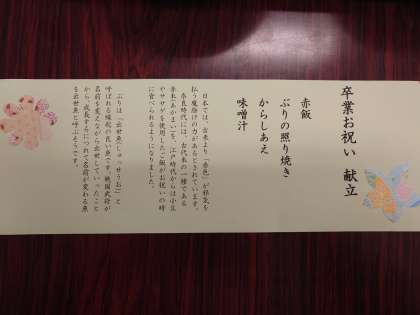 卒業お祝い 献立
赤飯
ぶりの照り焼き
からしあえ
味噌汁
日本では、古来より「赤色」が邪気を
払う魔除けの力があるとされています。
奈良時代には、古代米の一種である
赤米(あかまい)を、江戸時代からは小豆
やササゲを使用したご飯がお祝いの時
に食べられるようになりました。
ぶりは「出世魚(しゅっせうお)」と
呼ばれる縁起の良い魚です。戦国武将が
名前を変えながら出世していったこと
から、成長するにつれて名前が変わる魚
を出世魚と呼ぶそうです。